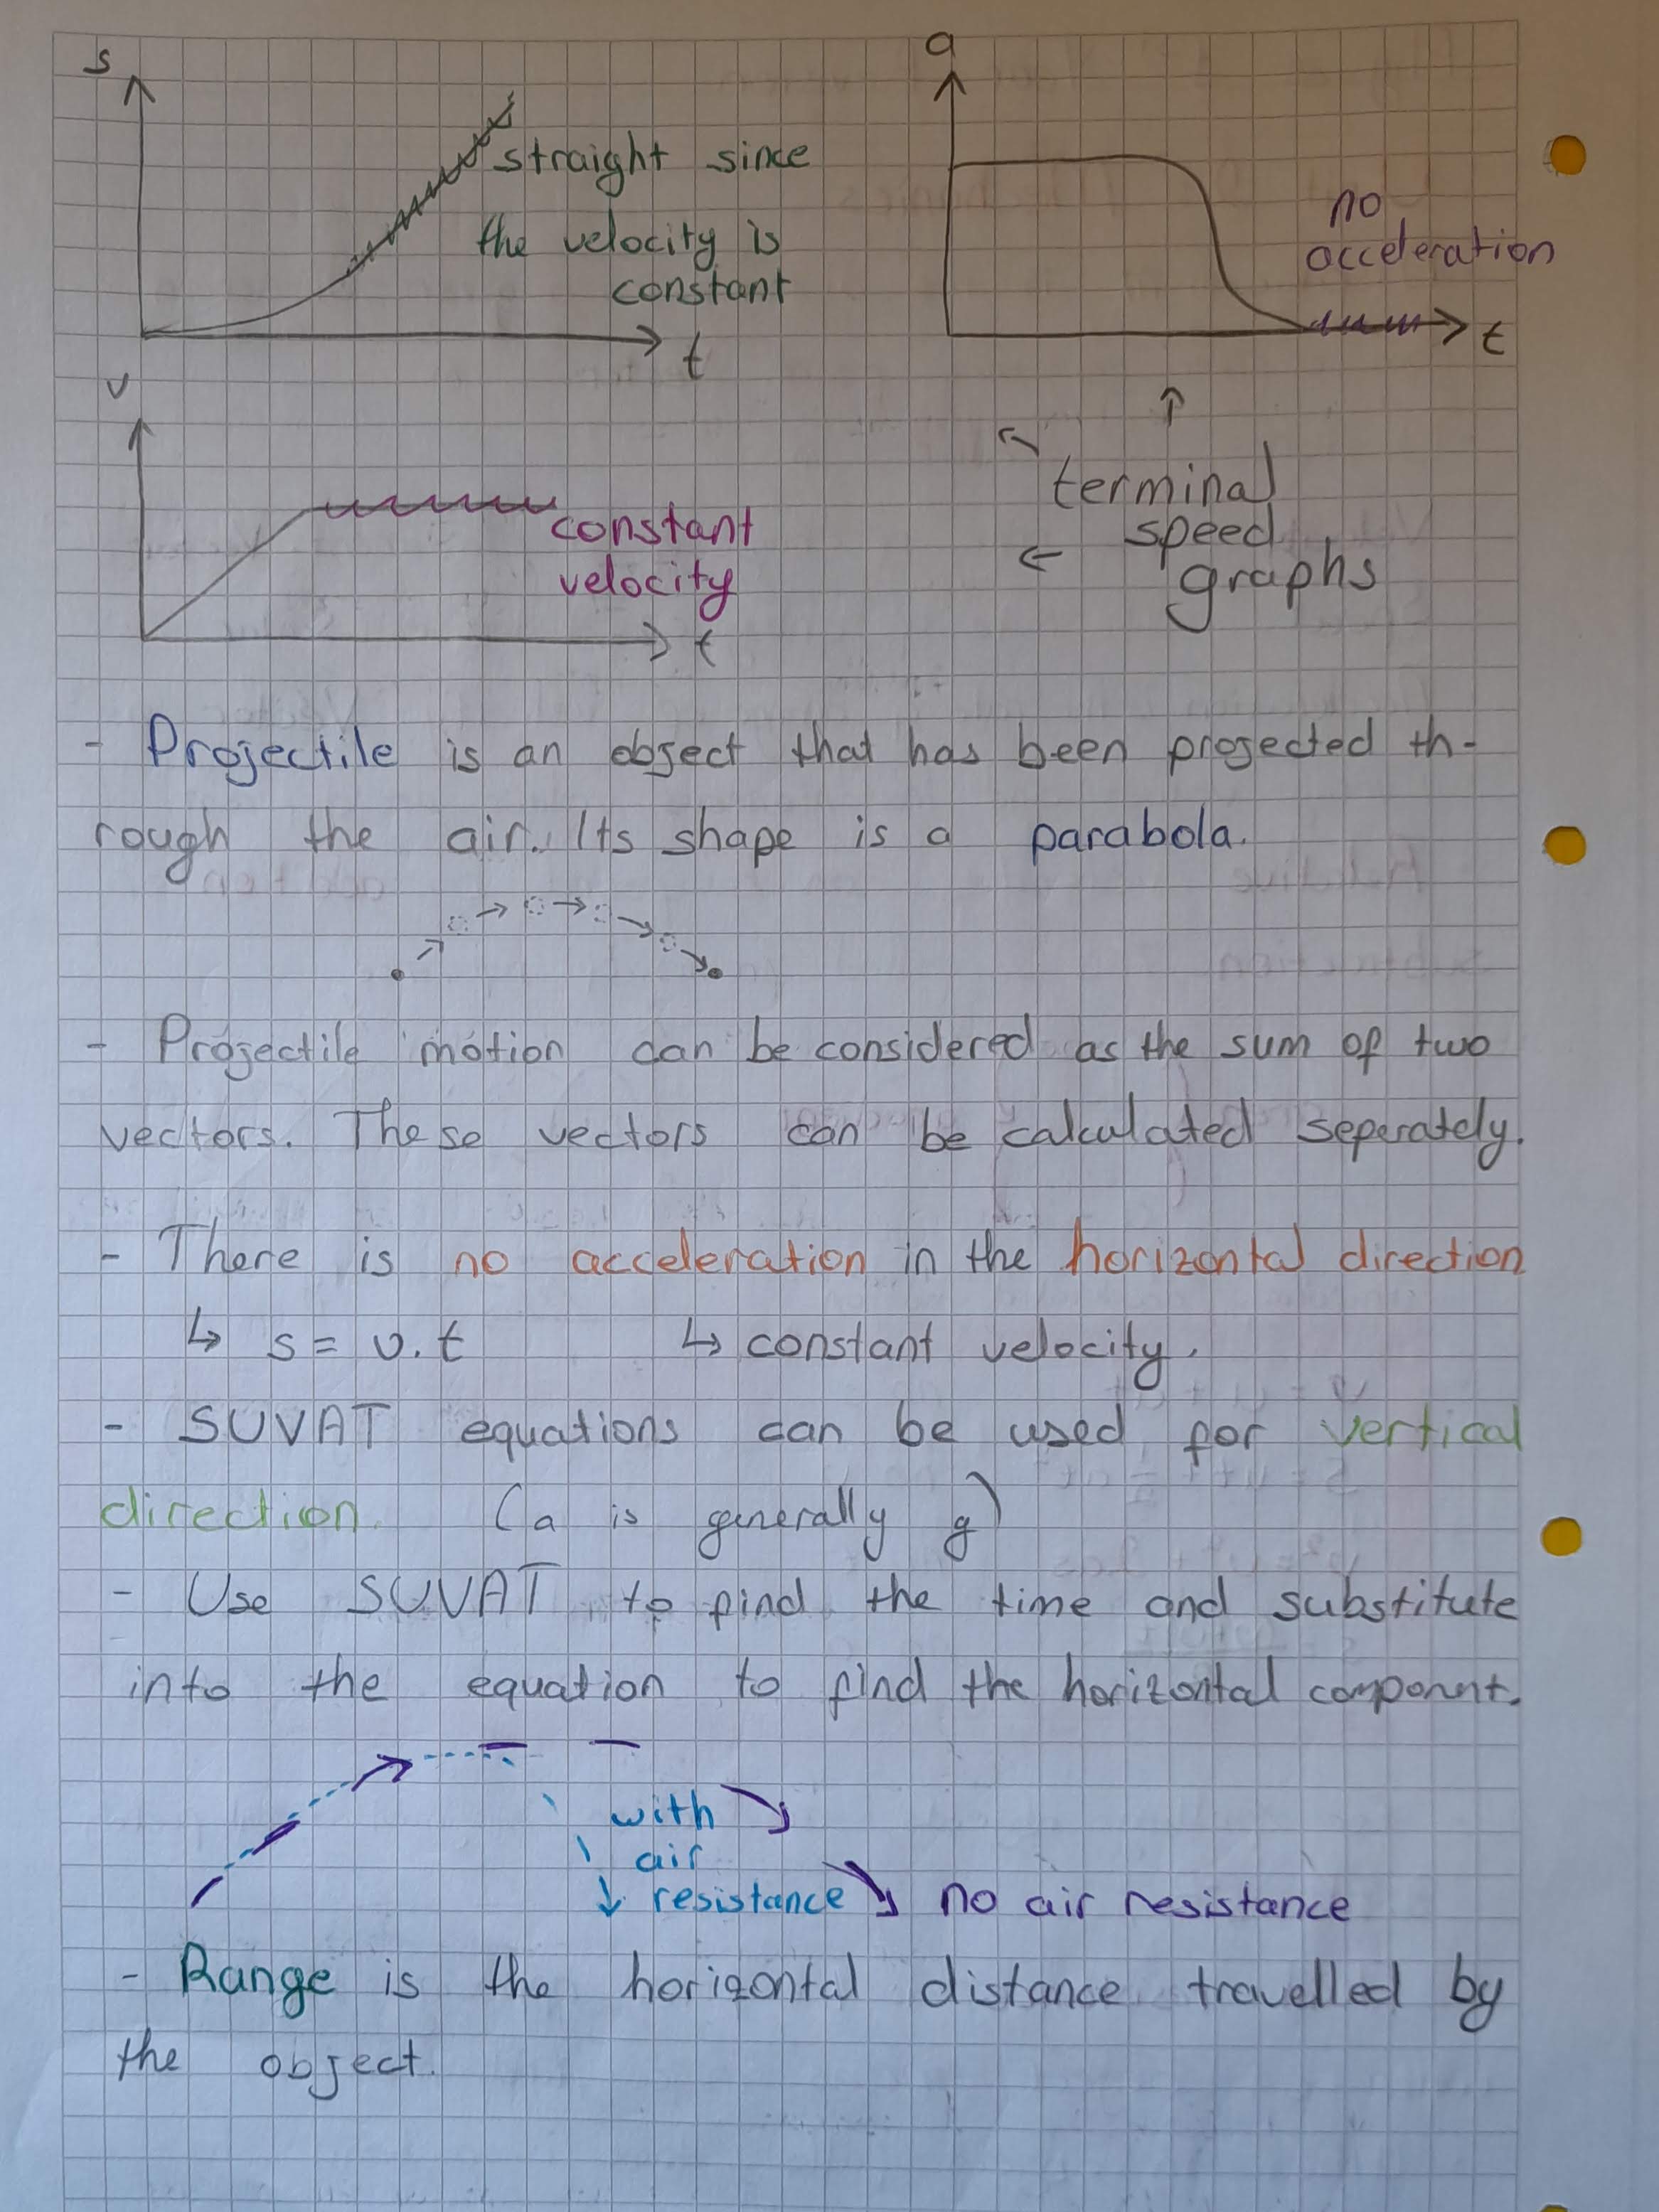 s
straight since
the velocity is
constant
t
a
no
acceleration
t
v
constant
velocity
t
terminal
speed
graphs
- Projectile is an object that has been projected th-
rough the air. Its shape is a parabola.
- Projectile motion can be considered as the sum of two
vectors. These vectors can be calculated seperately.
- There is no acceleration in the horizontal direction
↳ s = v.t ↳ constant velocity.
- SUVAT equations can be used for vertical
direction. (a is generally g)
- Use SUVAT to find the time and substitute
into the equation to find the horizontal component.
with
air
resistance
no air resistance
- Range is the horizontal distance travelled by
the object.